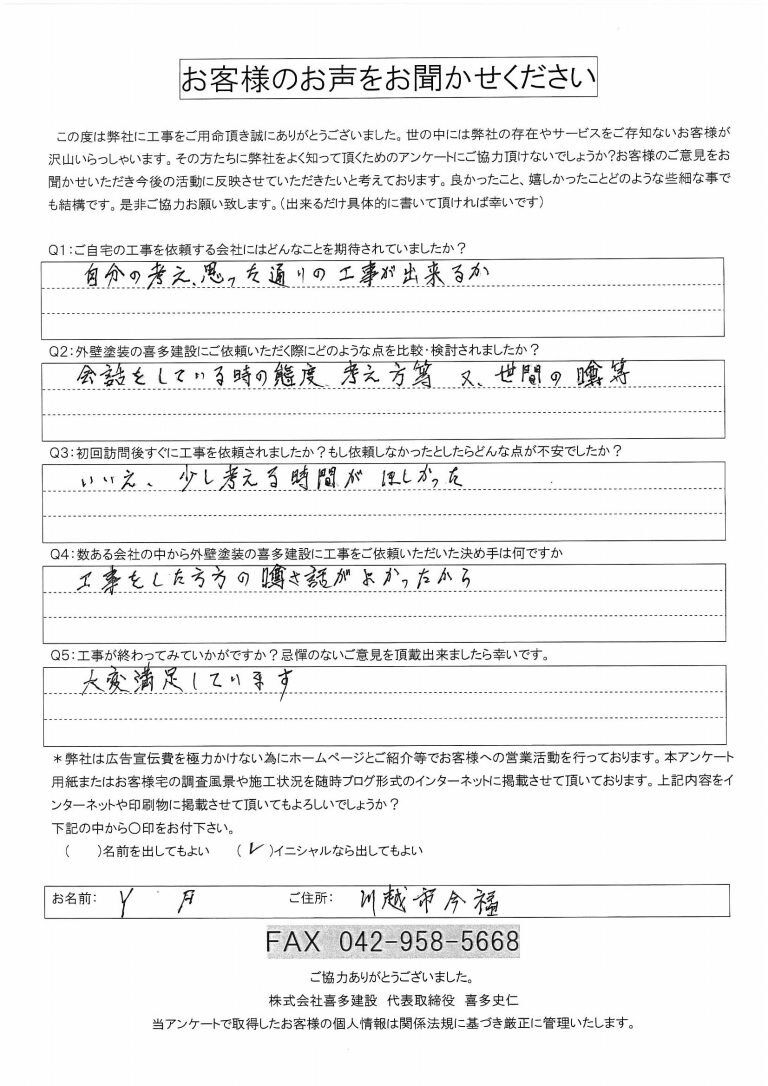 お客様のお声をお聞かせください
この度は弊社に工事をご用命頂き誠にありがとうございました。世の中には弊社の存在やサービスをご存知ないお客様が
沢山いらっしゃいます。その方たちに弊社をよく知って頂くためのアンケートにご協力頂けないでしょうか?お客様のご意見をお
聞かせいただき今後の活動に反映させていただきたいと考えております。良かったこと、嬉しかったことどのような些細な事で
も結構です。是非ご協力お願い致します。(出来るだけ具体的に書いて頂ければ幸いです)
Q1:ご自宅の工事を依頼する会社にはどんなことを期待されていましたか?
自分の考え、思った通りの工事が出来るか
Q2:外壁塗装の喜多建設にご依頼いただく際にどのような点を比較・検討されましたか?
会話をしている時の態度 考え方等 又、世間の噂等
Q3:初回訪問後すぐに工事を依頼されましたか?もし依頼しなかったとしたらどんな点が不安でしたか?
いいえ、少し考える時間がほしかった
Q4:数ある会社の中から外壁塗装の喜多建設に工事をご依頼いただいた決め手は何ですか
工事をした方方の噂さ話がよかったから
Q5:工事が終わってみていかがですか?忌憚のないご意見を頂戴出来ましたら幸いです。
大変満足しています
*弊社は広告宣伝費を極力かけない為にホームページとご紹介等でお客様への営業活動を行っております。本アンケート
用紙またはお客様宅の調査風景や施工状況を随時ブログ形式のインターネットに掲載させて頂いております。上記内容をイ
ンターネットや印刷物に掲載させて頂いてもよろしいでしょうか?
下記の中から〇印をお付下さい。
( )名前を出してもよい (✓)イニシャルなら出してもよい
お名前: Y 月 ご住所: 川越市今福
FAX 042-958-5668
ご協力ありがとうございました。
株式会社喜多建設 代表取締役 喜多史仁
当アンケートで取得したお客様の個人情報は関係法規に基づき厳正に管理いたします。